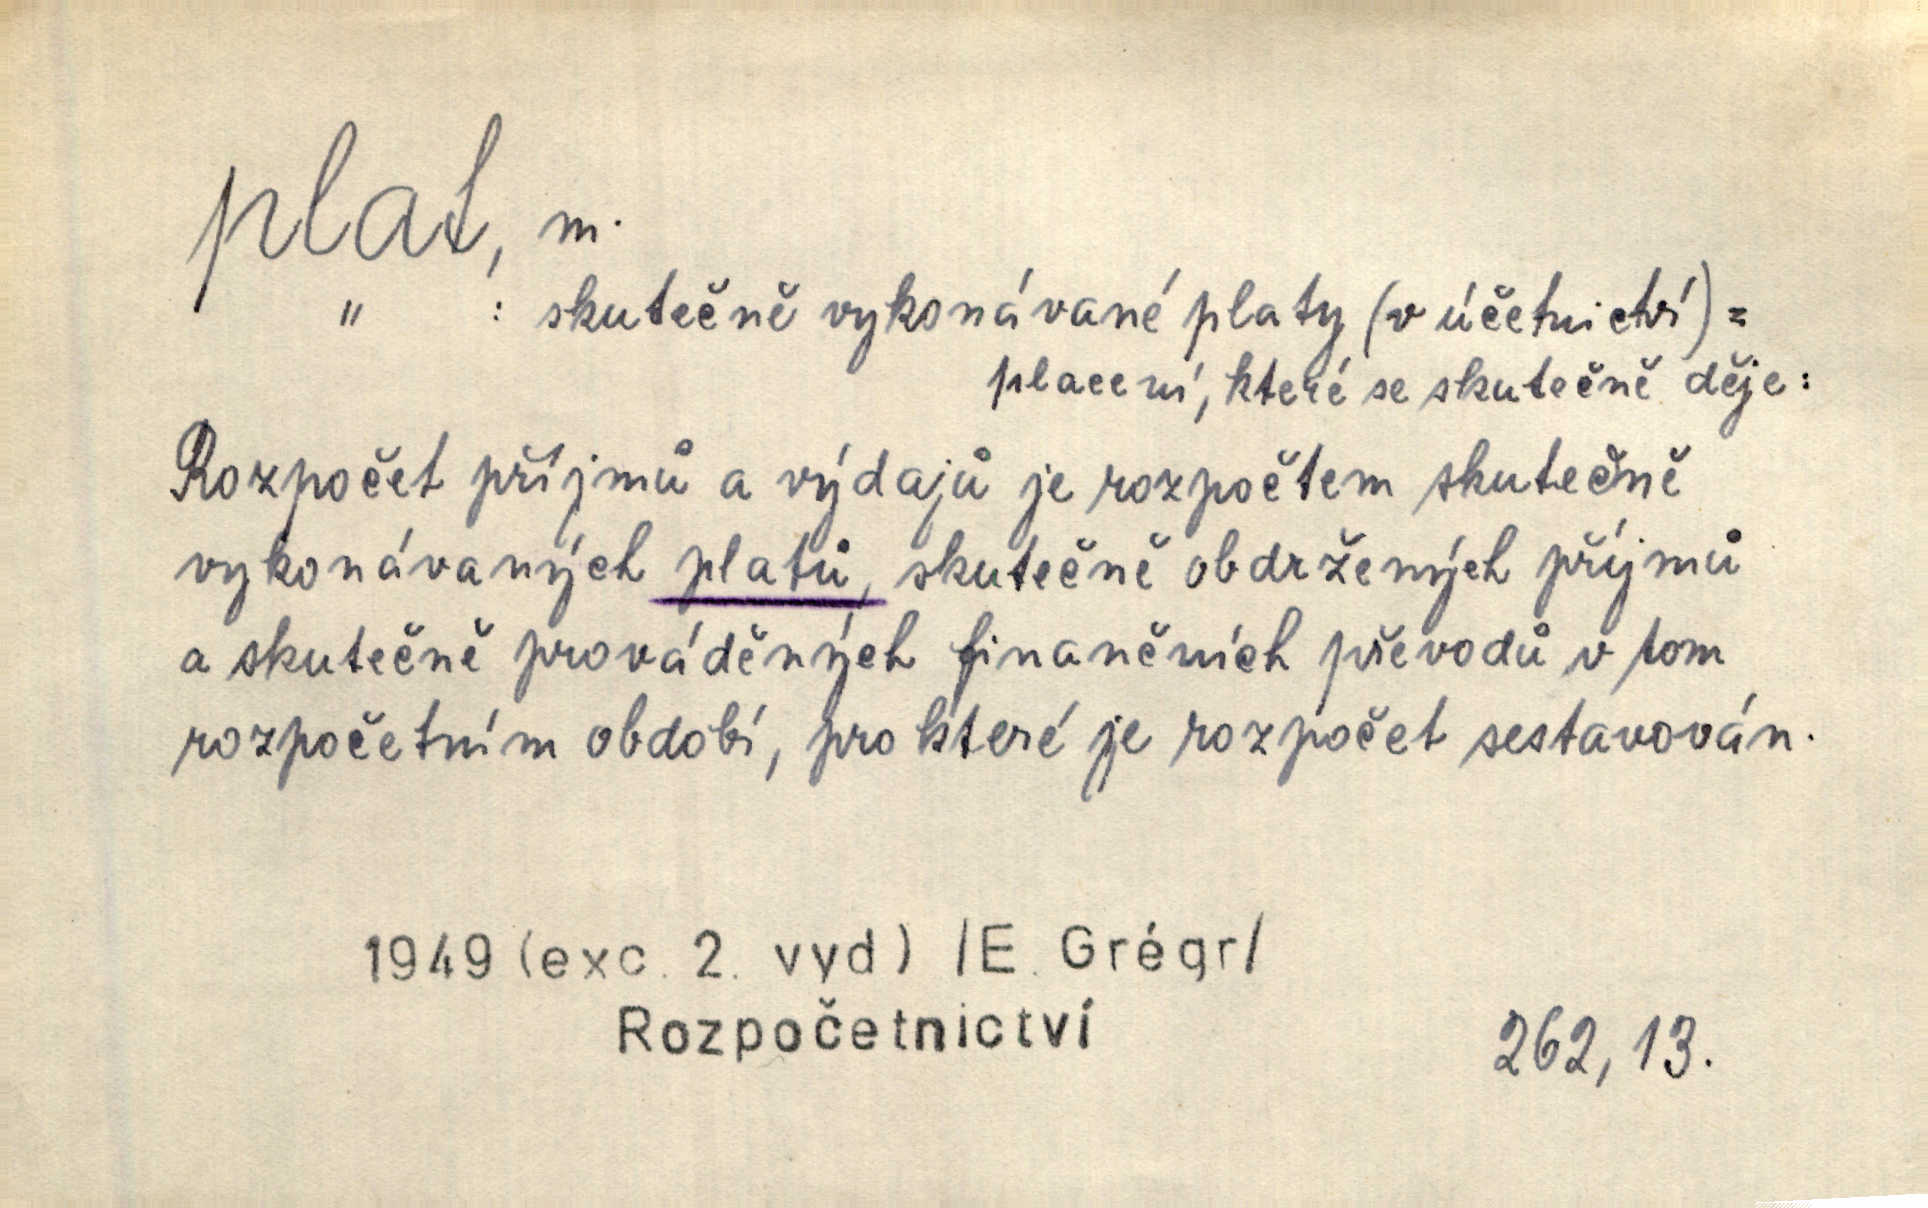 plat, m.
" : skutečně vykonávané platy (v účetnictví) =
placení, které se skutečně děje:
Rozpočet příjmů a výdajů je rozpočtem skutečně
vykonávaných platů, skutečně obdržených příjmů
a skutečně prováděných finančních převodů v tom
rozpočetním období, pro které je rozpočet sestavován.
1949 (exc. 2. vyd) /E. Grégr/
Rozpočetnictví
262, 13.